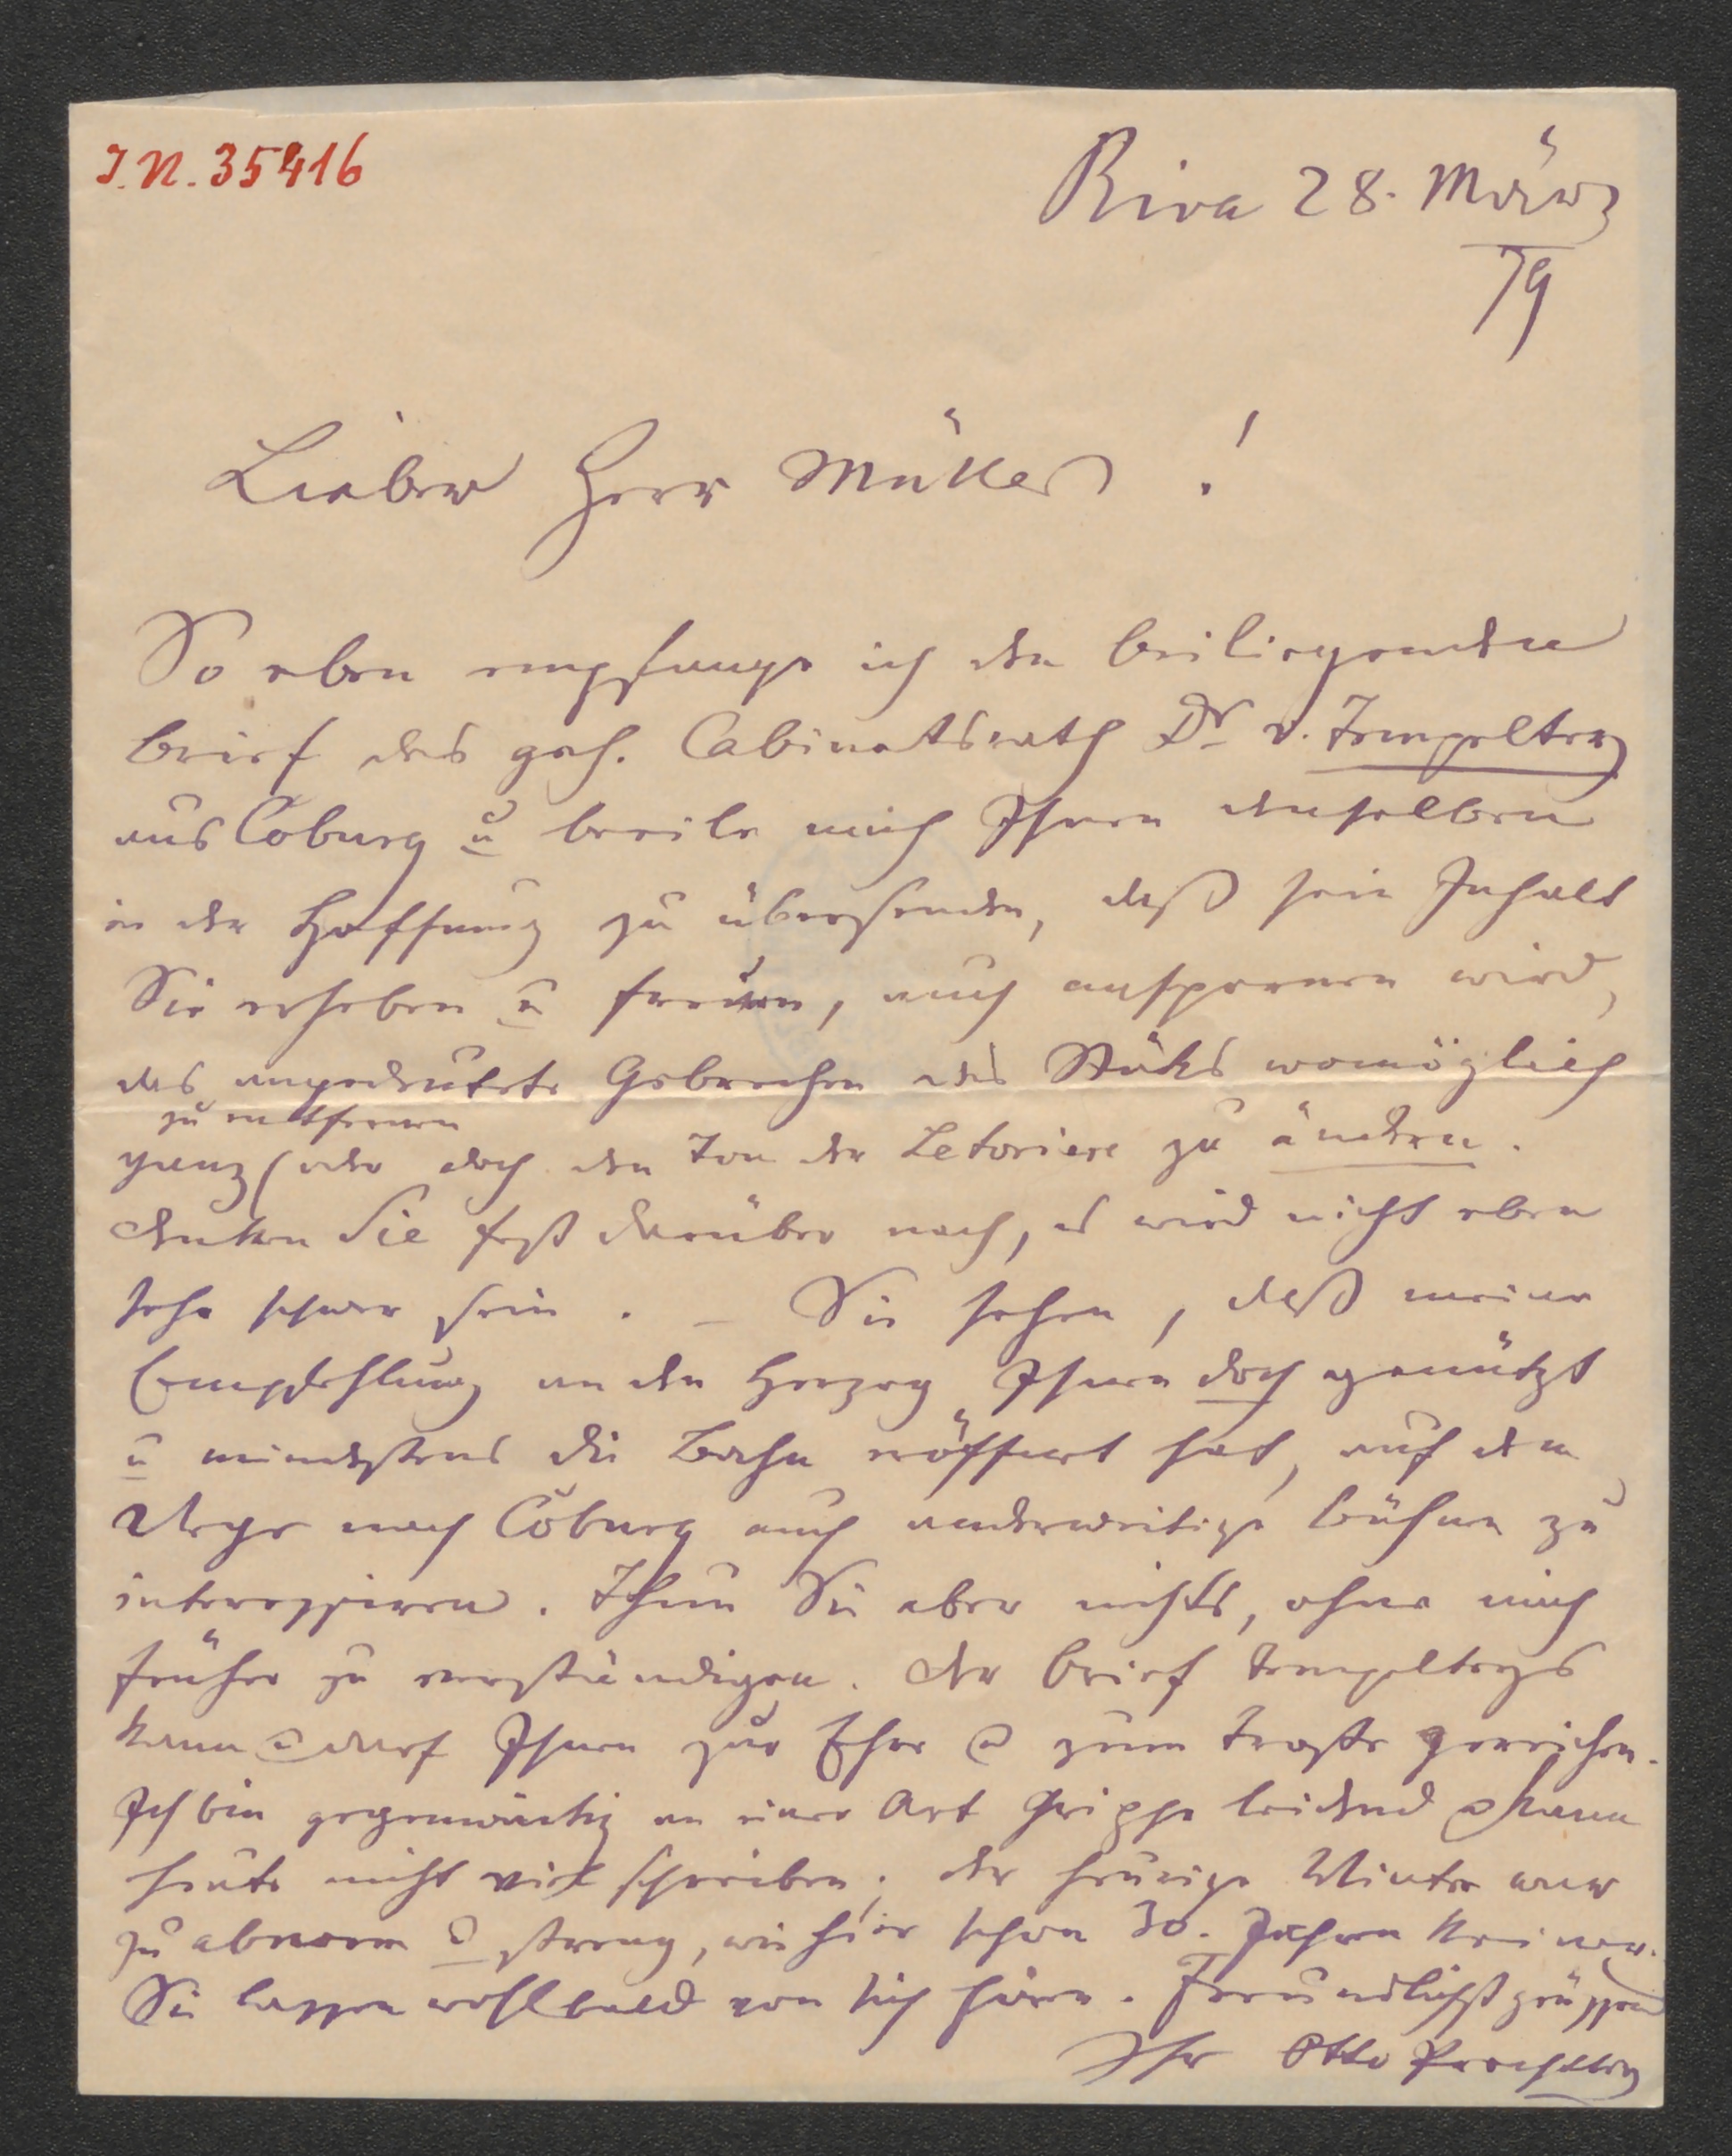 I.N. 35416
Riva 28. März
79
Lieber Herr Müller!
So eben empfange ich den beiliegenden
Brief des geh. Cabinetsrath Dr v. Tempeltey
aus Coburg u beeile mich Ihnen denselben
in der Hoffnung zu übersenden, daß sein Inhalt
Sie erheben u freuen, auch anspornen wird,
das angedeutete Gebrechen des Stüks womöglich
zu entfernen
ganz oder doch den Ton der Letoriere zu ändern.
Denken Sie fest darüber nach, es wird nicht eben
sehr schwer sein. – Sie sehen, daß meine
Empfehlung an den Herzog Ihnen doch genützt
u mindestens die Bahn eröffnet hat, auf dem
Wege nach Coburg auch anderweitige Bühnen zu
interessiren. Thun Sie aber nichts, ohne mich
früher zu verständigen. Der Brief Tempelteys
kann u darf Ihnen zur Ehre u zum Troste gereichen.
Ich bin gegenwärtig an einer Art Grippe leidend u kann
heute nicht viel schreiben; der heurige Winter war
zu abnorm u streng, wie hier schon 30. Jahren keiner.
Sie lassen wohl bald von sich hören. Freundlichst grüssend
Ihr Otto Prechtler